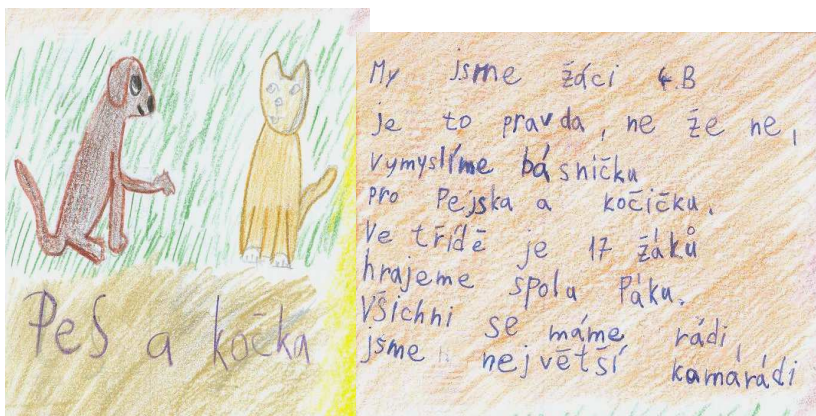 Pes a kočka
My jsme žáci 4.B
je to pravda, ne že ne,
vymyslíme básničku
pro Pejska a kočičku.
Ve třídě je 17 žáků
hrajeme spolu Páku.
Všichni se máme rádi,
jsme největší kamarádi